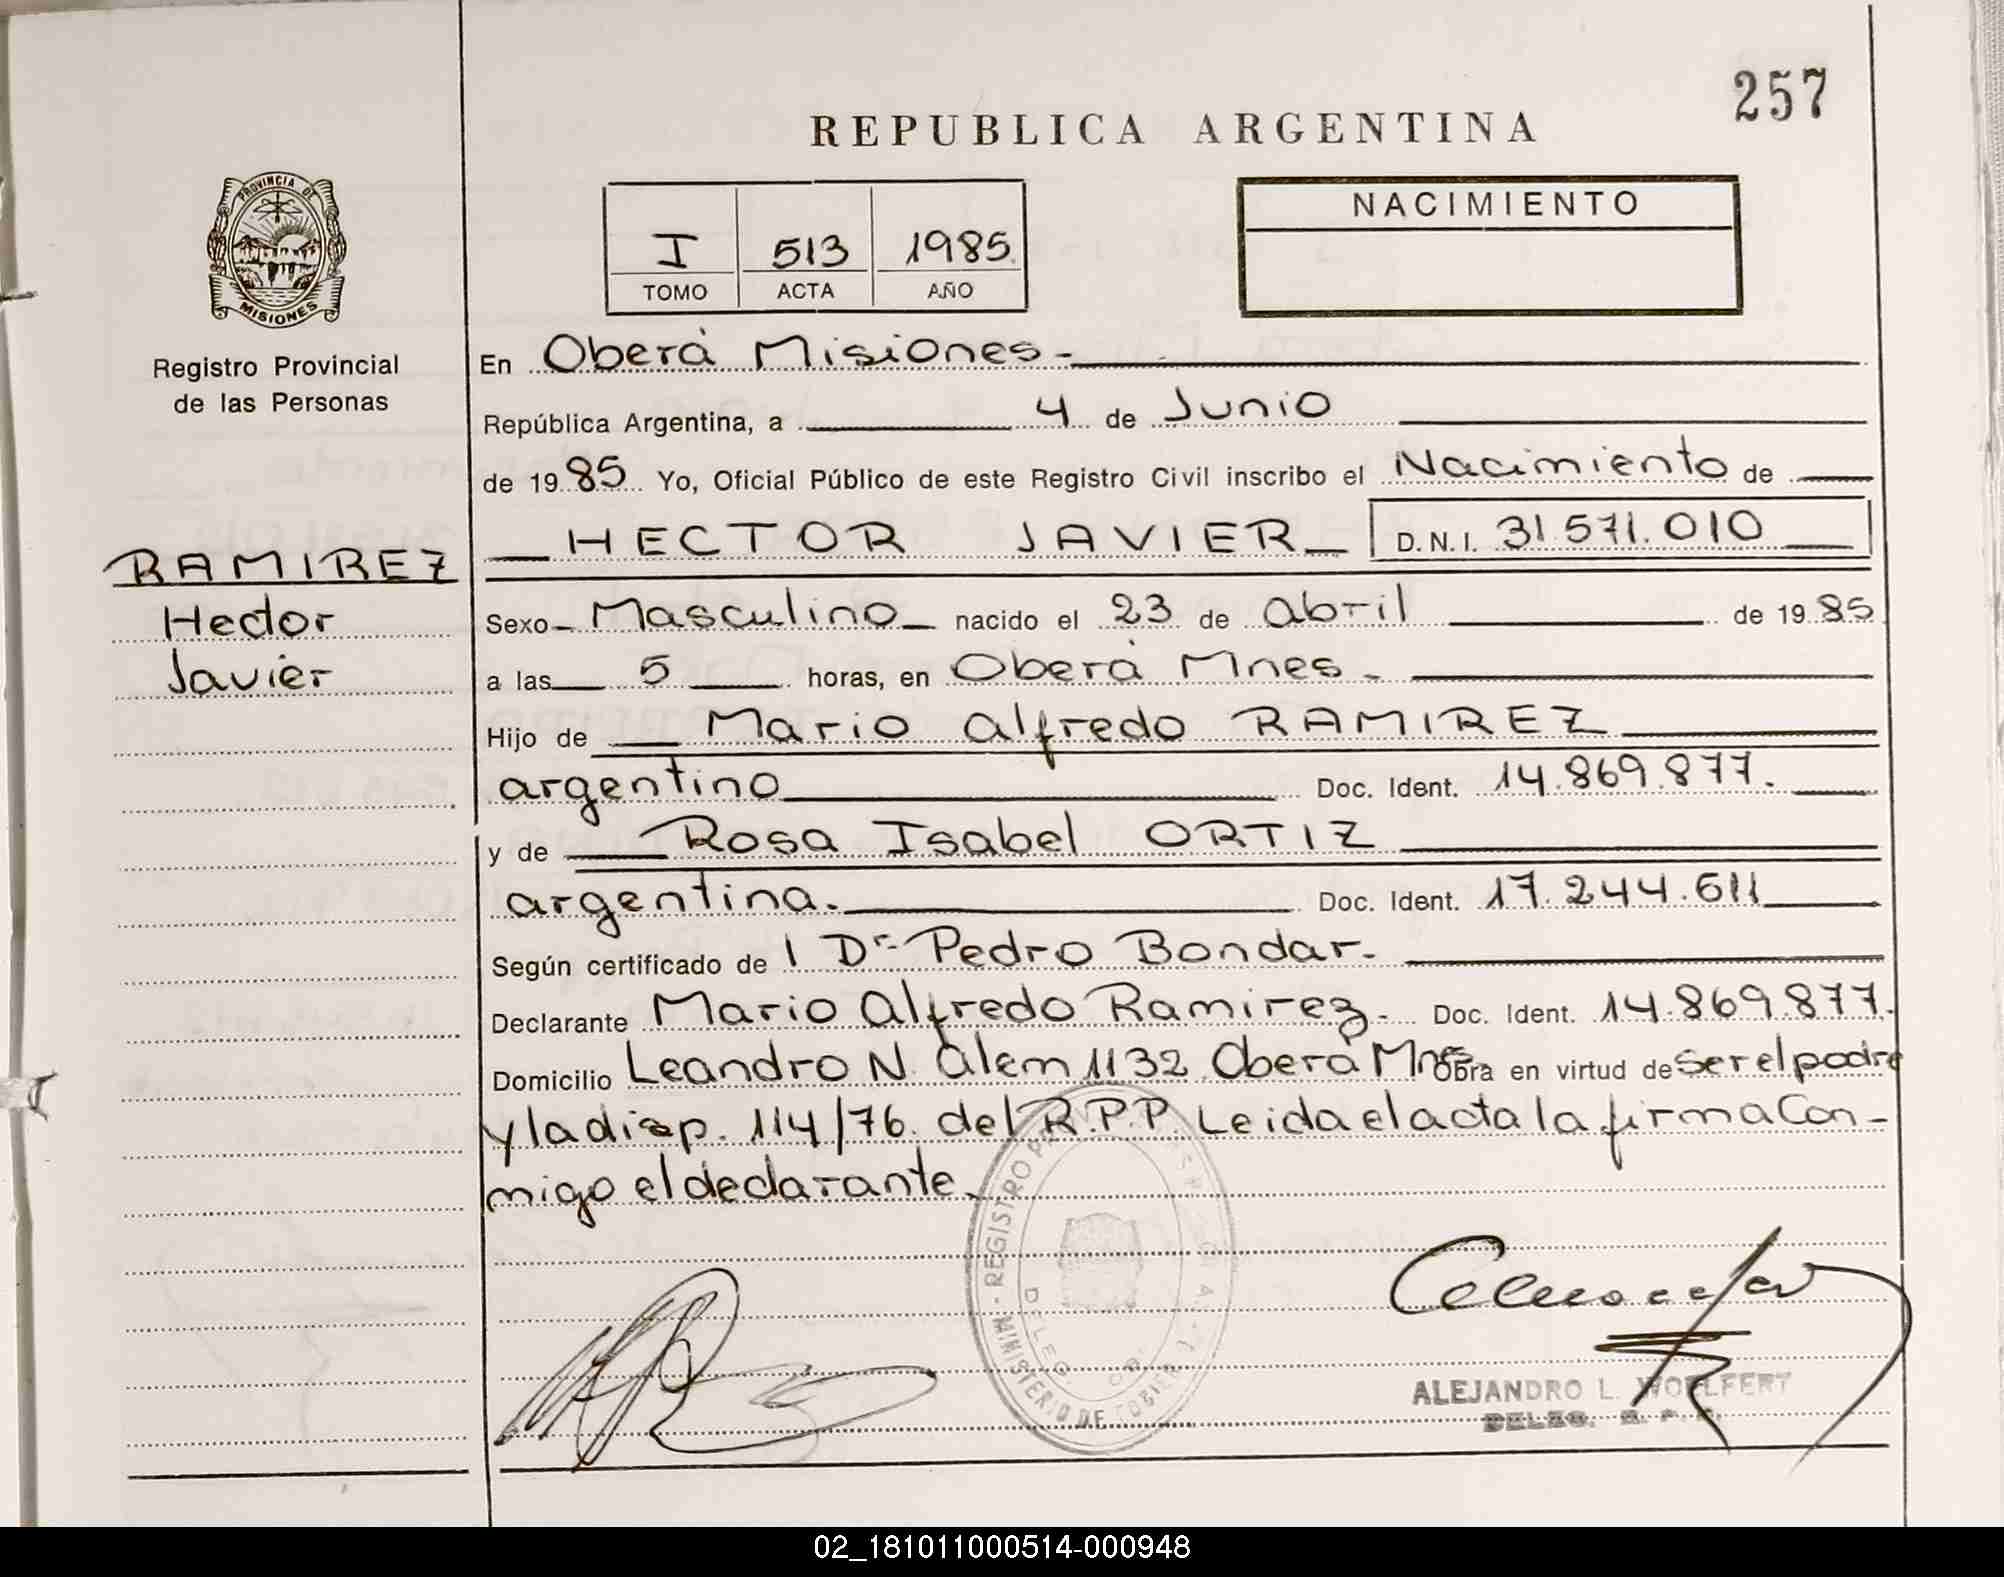 257
REPUBLICA ARGENTINA
PROVINCIA DE
MISIONES
Registro Provincial
de las Personas
I 513 1985
TOMO ACTA AÑO
NACIMIENTO
En Oberá Misiones.-
República Argentina, a 4 de Junio
de 1985 Yo, Oficial Público de este Registro Civil inscribo el Nacimiento de
HECTOR JAVIER D.N.I. 31.571.010
RAMIREZ
Hector
Javier
Sexo Masculino nacido el 23 de abril de 1985
a las 5 horas, en Oberá Mnes.
Hijo de Mario Alfredo RAMIREZ
argentino Doc. Ident. 14.869.877.
y de Rosa Isabel ORTIZ
argentina. Doc. Ident. 17.244.611
Según certificado de l Dr Pedro Bondar.
Declarante Mario Alfredo Ramirez. Doc. Ident. 14.869.877.
Domicilio Leandro N. Alem 1132 Oberá Mnes Obra en virtud de ser el padre
y la disp. 114/76. del R.P.P. Leida el acta la firma Con-
migo el declarante.
MINISTERIO DE GOBIER - REGISTRO
DELEG
ALEJANDRO L. WOELFERT
DELEG. R. P. P.
02_181011000514-000948